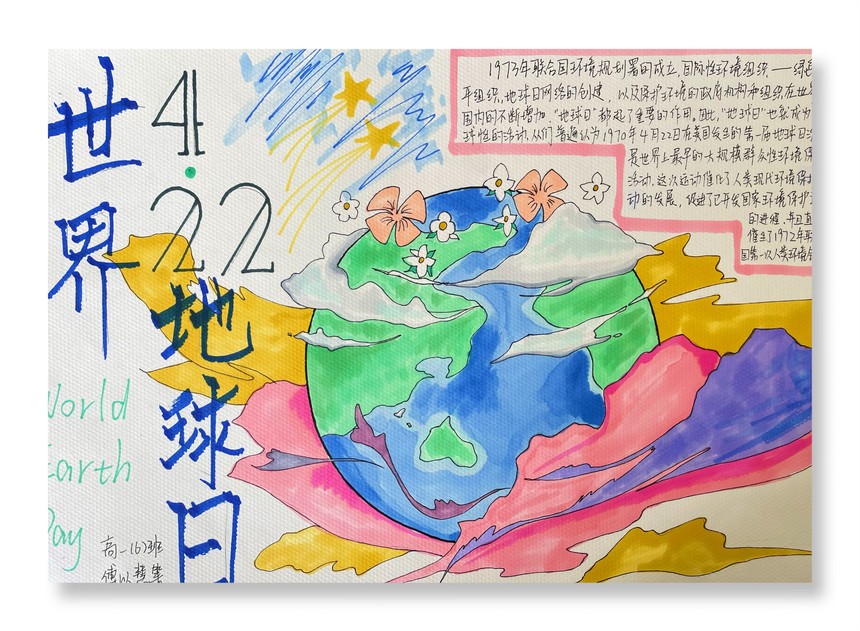 世界
4.22
地球日
World
Earth
Day
高一(6)班
1973年联合国环境规划署的成立,国际性环境组织——绿色
平组织,地球日网络的创建,以及保护环境的政府机构和组织在世界
国内的不断增加,“地球日”都起了重要的作用。因此,“地球日”也就成为
球性的活动.人们普遍认为1970年4月22日在美国发生的第一届地球日活
是世界上最早的大规模群众性环境保
活动.这次运动催化了人类现代环境保护
动的发展,促进了已开发国家环境保护
的进程,并且直
催生了1972年联
国第一次人类环境会